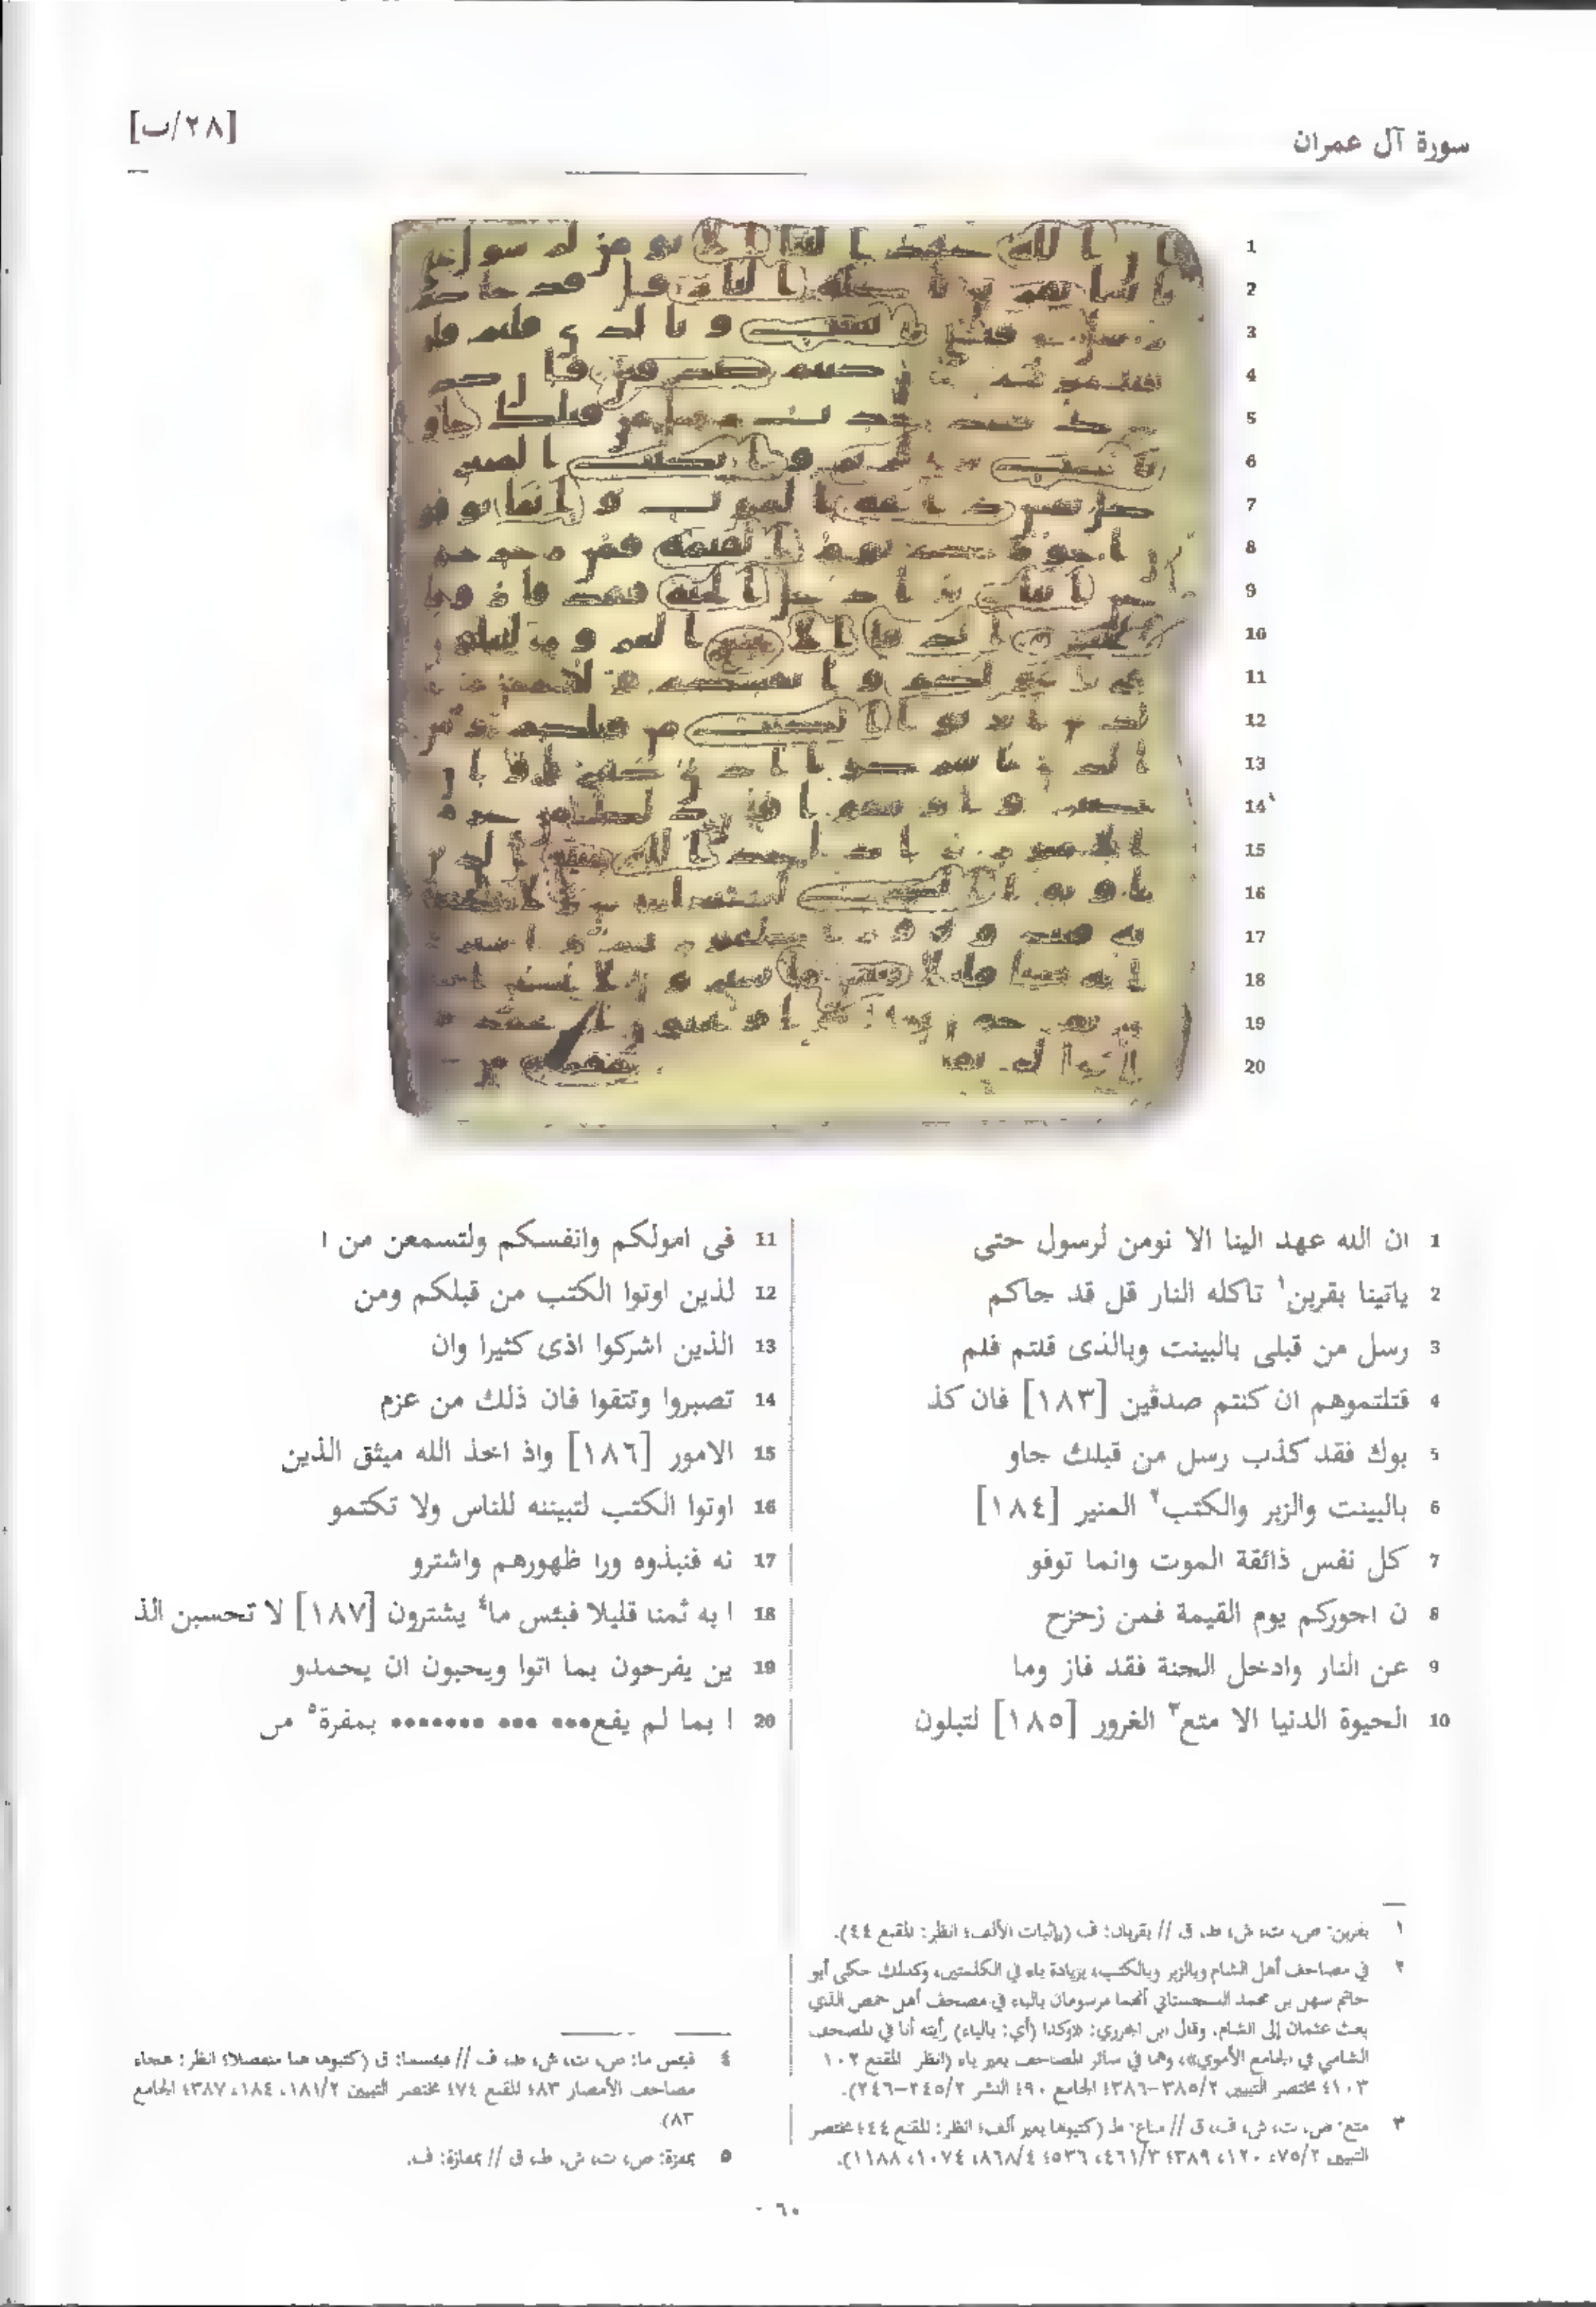 [٢٨/ب]
سورة آل عمران
1 ان الله عهد الينا الا نومن لرسول حتى
2 ياتينا بقربن١ تاكله النار قل قد جاكم
3 رسل من قبلى بالبينت وبالذى قلتم فلم
4 قتلتموهم ان كنتم صدقين [١٨٣] فان كذ
5 بوك فقد كذب رسل من قبلك جاو
6 بالبينت والزبر والكتب٢ المنير [١٨٤]
7 كل نفس ذائقة الموت وانما توفو
8 ن اجوركم يوم القيمة فمن زحزح
9 عن النار وادخل الجنة فقد فاز وما
10 الحيوة الدنيا الا متع٣ الغرور [١٨٥] لتبلون
11 فى امولكم وانفسكم ولتسمعن من ا
12 لذين اوتوا الكتب من قبلكم ومن
13 الذين اشركوا اذى كثيرا وان
14 تصبروا وتتقوا فان ذلك من عزم
15 الامور [١٨٦] واذ اخذ الله ميثق الذين
16 اوتوا الكتب لتبيننه للناس ولا تكتمو
17 نه فنبذوه ورا ظهورهم واشترو
18 ا به ثمنا قليلا فبئس ما٤ يشترون [١٨٧] لا تحسبن الذ
19 ين يفرحون بما اتوا ويحبون ان يحمدو
20 ا بما لم يفع••• ••• ••••••• بمفزة٥ من
١ بقربن: ص، ت، ش، ط، ق // بقربان: ف (بإثبات الألف؛ انظر: المقنع ٤٤).
٢ في مصاحف أهل الشام وبالزبر وبالكتب، بزيادة باء في الكلمتين، وكذلك حكى أبو
حاتم سهل بن محمد السجستاني أنهما مرسومان بالباء في مصحف أهل حمص الذي
بعث عثمان إلى الشام. وقال ابن الجزري: «وكذا (أي: بالباء) رأيته أنا في المصحف
الشامي في الجامع الأموي»، وهما في سائر المصاحف بغير باء (انظر المقنع ١٠٢
١٠٣؛ مختصر التبيين ٣٨٥/٢-٣٨٦؛ الجامع ٩٠؛ النشر ٢٤٥/٢-٢٤٦).
٣ متع: ص، ت، ش، ف، ق // متاع: ط (كتبوها بغير ألف؛ انظر: المقنع ٤٤؛ مختصر
التبيين ٧٥/٢، ١٢٠، ٣٨٩؛ ٤٦١/٣، ٥٣٦؛ ٨٦٨/٤، ١٠٧٤، ١١٨٨).
٤ فبئس ما: ص، ت، ش، ط، ف // فبئسما: ق (كتبوها هنا منفصلا؛ انظر: هجاء
مصاحف الأمصار ٨٣؛ المقنع ٧٤؛ مختصر التبيين ١٨١/٢، ١٨٤، ٣٨٧؛ الجامع
٨٣).
٥ بمفزة: ص، ت، ش، ط، ق // بمفازة: ف.
٦٠